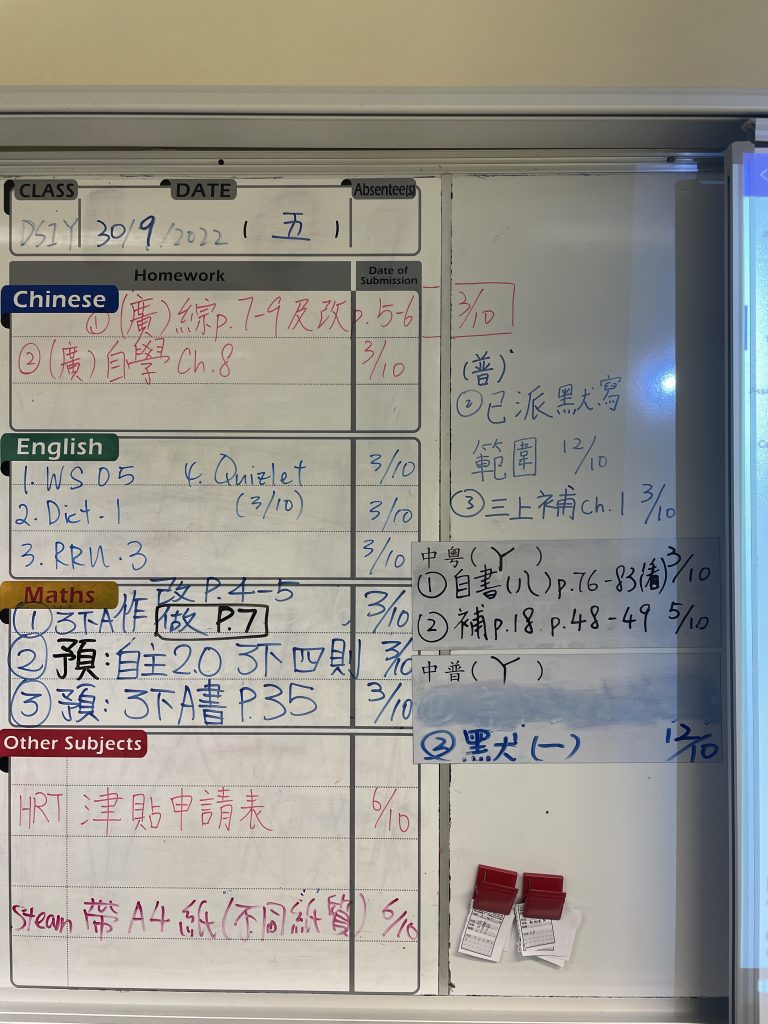 CLASS DATE Absentee(s)
DSIY 30/9/2022 (五)
Homework Date of Submission
Chinese
①(廣)綜p.7-9及改p.5-6 3/10
②(廣)自學Ch.8 3/10
English
1. WS 05 4. Quizlet 3/10
(3/10)
2. Dict.1 3/10
3. RRU.3 3/10
Maths
改P.4-5
①3下A作 做 P.7 3/10
②預:自主2.0 3下四則 3/10
③預:3下A書P.35 3/10
Other Subjects
HRT 津貼申請表 6/10
Steam 帶A4紙(不同紙質) 6/10
(普)
②已派默寫
範圍 12/10
③三上補Ch.1 3/10
中粵(丫)
①自書(八)p.76-83(看) 3/10
②補p.18 p.48-49 5/10
中普(丫)
②默(一) 12/10